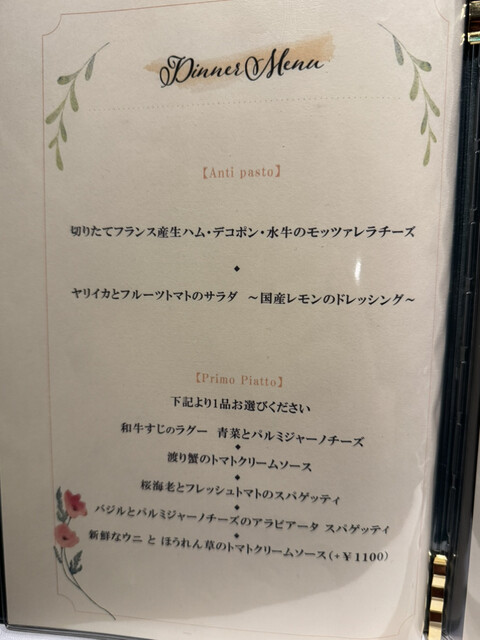 Dinner Menu
【Anti pasto】
切りたてフランス産生ハム・デコポン・水牛のモッツァレラチーズ
ヤリイカとフルーツトマトのサラダ ～国産レモンのドレッシング～
【Primo Piatto】
下記より1品お選びください
和牛すじのラグー 青菜とパルミジャーノチーズ
渡り蟹のトマトクリームソース
桜海老とフレッシュトマトのスパゲッティ
バジルとパルミジャーノチーズのアラビアータ スパゲッティ
新鮮なウニ と ほうれん草のトマトクリームソース(+￥1100)